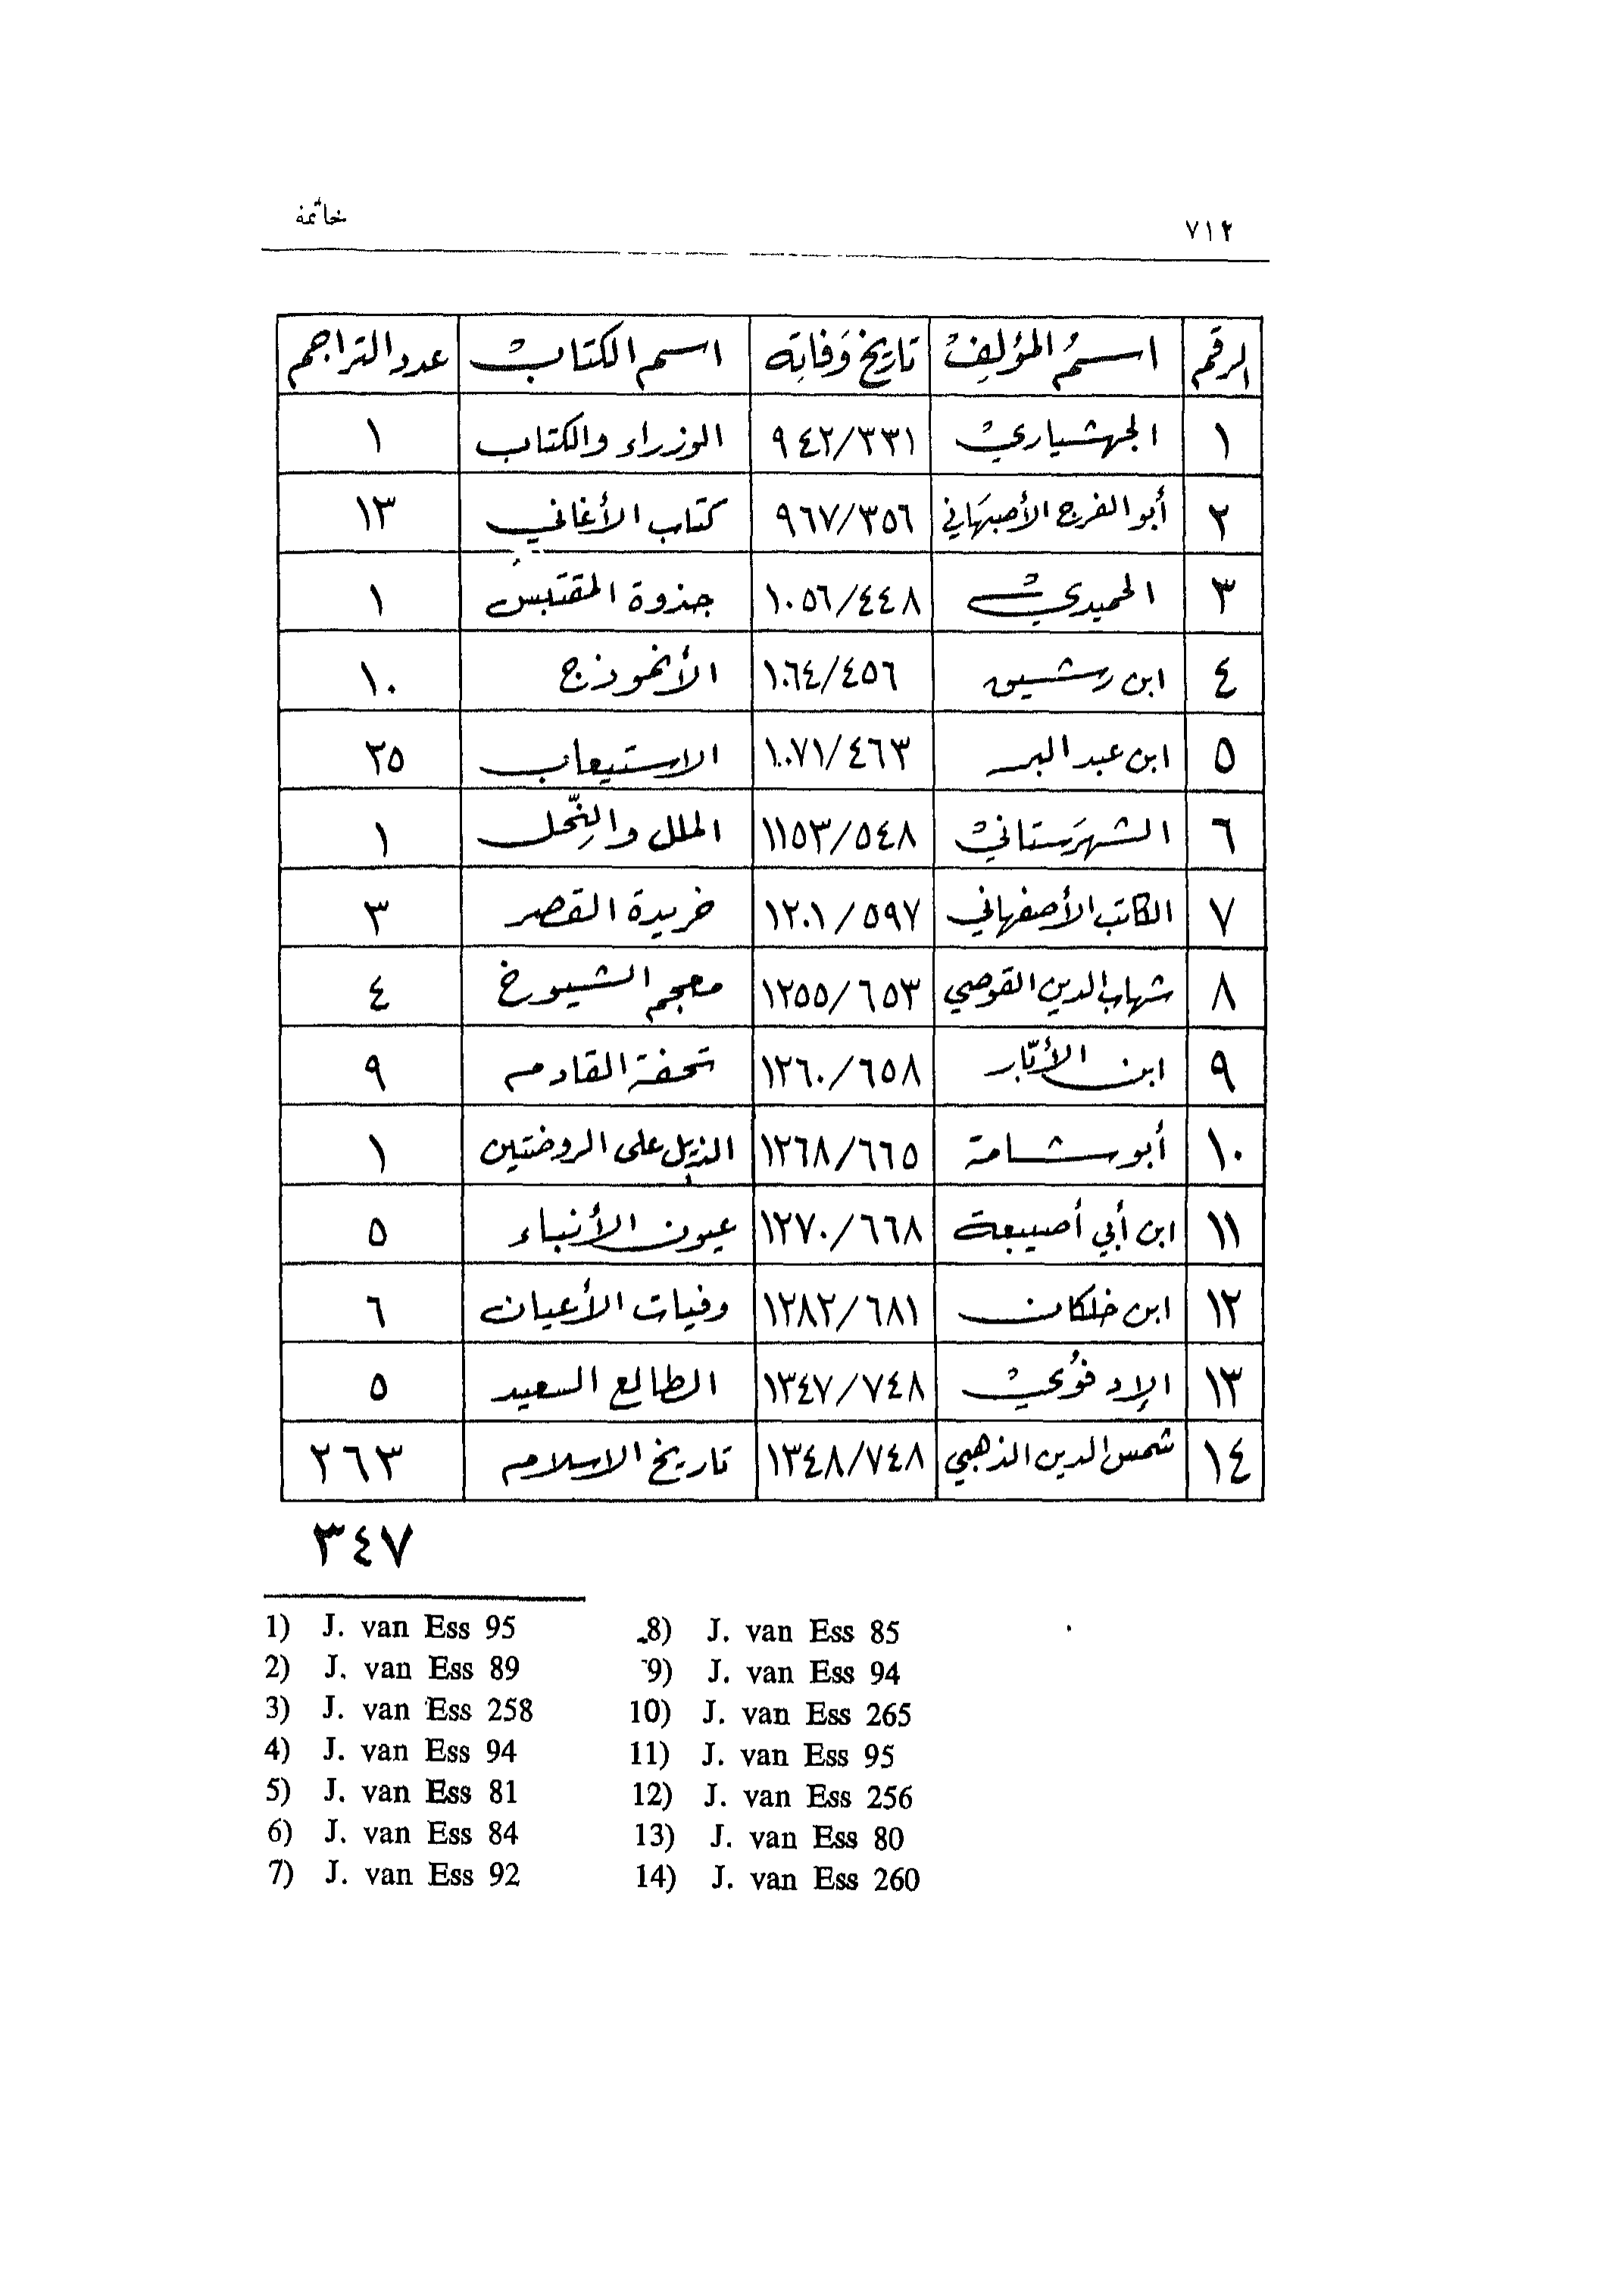 ٧١٢ خاتمة
الرقم اسمُ المؤلِفْ تاريخ وَفاتِه اسم الكتابْ عدد التراجم
١ الجهشياريْ ٩٤٢/٣٣١ الوزراء والكتاب ١
٢ أبو الفرج الأصبهَاني ٩٦٧/٣٥٦ كتاب الأغاني ١٣
٣ الحميديْ ١٠٥٦/٤٤٨ جذوة المقتَبِس ١
٤ ابن رشيق ١٠٦٤/٤٥٦ الأنموذج ١٠
٥ ابن عبد البر ١٠٧١/٤٦٣ الاستيعاب ٢٥
٦ الشهرَستانيْ ١١٥٣/٥٤٨ الملل والنِّحل ١
٧ الكاتب الأصفهاني ١٢٠١/٥٩٧ خريدة القصر ٣
٨ شهاب الدين القوصي ١٢٥٥/٦٥٣ معجم الشيوخ ٤
٩ ابن الأبّار ١٢٦٠/٦٥٨ تحفة القادم ٩
١٠ أبو شامة ١٢٦٨/٦٦٥ الذيل على الروضتين ١
١١ ابن أبي أصيبعة ١٢٧٠/٦٦٨ عيون الأنباء ٥
١٢ ابن خلكان ١٢٨٢/٦٨١ وفيات الأعيان ٦
١٣ الإدفُويْ ١٣٤٧/٧٤٨ الطالع السعيد ٥
١٤ شمس الدين الذهبي ١٣٤٨/٧٤٨ تاريخ الاسلام ٢٦٣
٣٤٧
1) J. van Ess 95 8) J. van Ess 85
2) J. van Ess 89 9) J. van Ess 94
3) J. van Ess 258 10) J. van Ess 265
4) J. van Ess 94 11) J. van Ess 95
5) J. van Ess 81 12) J. van Ess 256
6) J. van Ess 84 13) J. van Ess 80
7) J. van Ess 92 14) J. van Ess 260